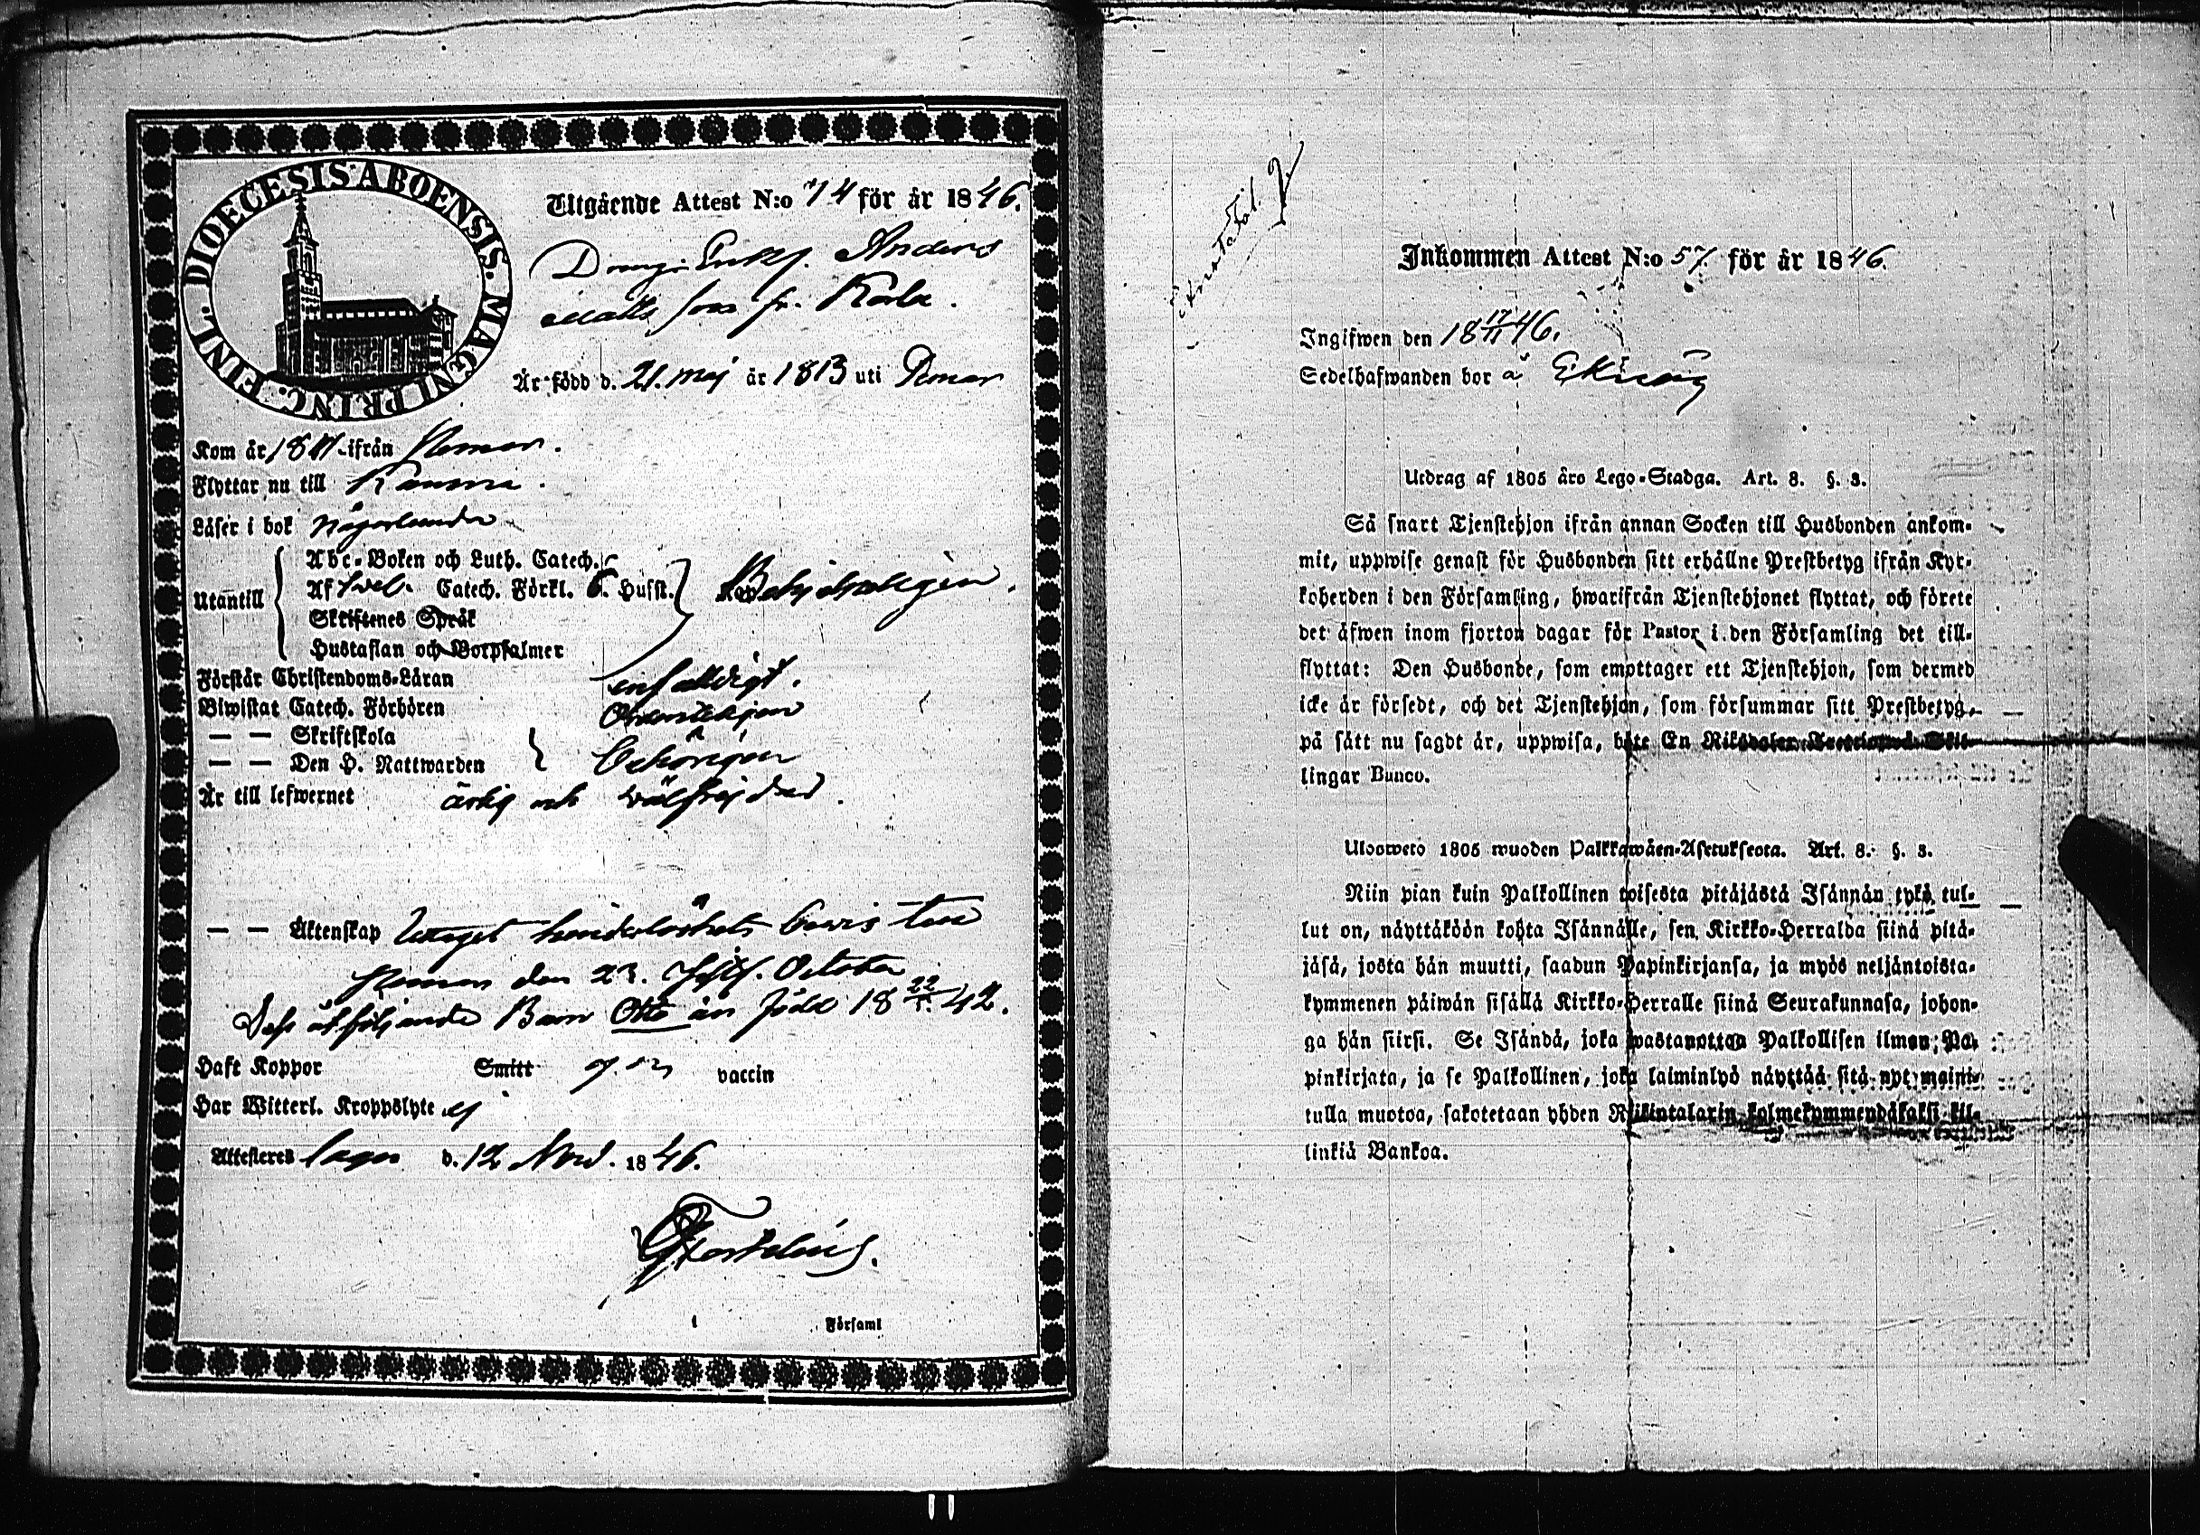 DIOECESIS ABOENSIS. MAGNI PRINC. FINL.
Utgående Attest N:o 74 för år 1846.
Dreng Enkl. Anders
Matts son fr. Karla.
Är född d. 21. Maj år 1813 uti Nemar
Kom år ifrån Nemar.
Flyttar nu till Rauma.
Läser i bok någorlunda
Utantill
Abc-Boken och Luth. Catech.
Af Svel. Catech. Förkl. 6. Husst.
Skriftenes Språk
Hustaflan och Botpsalmer
Förstår Christendoms-Läran enfaldigt.
Biwistat Catech. Förhören Ordentligen
— — Skriftskola
— — Den H. Nattwarden Behörigen
Är till lefwernet ärlig och wälfrejdad.
— — Äktenskap hinderlöshets bevis
den 23. October
Dess åtföljande Barn Otto är född 18 22/1. 42.
Haft Koppor Smitt vaccin
Har Witterl. Kroppslyte ej
Attesteres d. 12 Nov. 1846.
Församl
Inkommen Attest N:o 57. för år 1846.
Ingifwen den 18 17/11 46.
Sedelhafwanden bor å
Utdrag af 1805 års Lego-Stadga. Art. 8. §. 3.
Så snart Tjenstehjon ifrån annan Socken till Husbonden ankom-
mit, uppwise genast för Husbonden sitt erhållne Prestbetyg ifrån Kyr-
koherden i den Församling, hwarifrån Tjenstehjonet flyttat, och förete
det äfwen inom fjorton dagar för Pastor i den Församling det till-
flyttat: Den Husbonde, som empttager ett Tjenstehjon, som dermed
icke är försedt, och det Tjenstehjon, som försummar sitt Prestbetyg,
på sätt nu sagdt är, uppwisa, böte En Riksdaler Trettiotvå Skil-
lingar Banco.
Ulosweto 1805 wuoden Palkkawäen-Asetuksesta. Art. 8. §. 3.
Niin pian kuin Palkollinen toisesta pitäjästä Isännän tykö tul-
lut on, näyttäköön kohta Isännälle, sen Kirkko-Herralda siinä pitä-
jäsä, josta hän muutti, saadun Papinkirjansa, ja myös neljäntoista-
kymmenen päiwän sisällä Kirkko-Herralle siinä Seurakunnasa, johon-
ga hän siirsi. Se Isändä, joka wastanottaa Palkollisen ilman Pa-
pinkirjata, ja se Palkollinen, joka laiminlyö näyttää sitä nyt maini-
tulla muotoa, sakotetaan yhden Riikintalarin kolmekymmendäkaksi kil-
linkiä Bankoa.